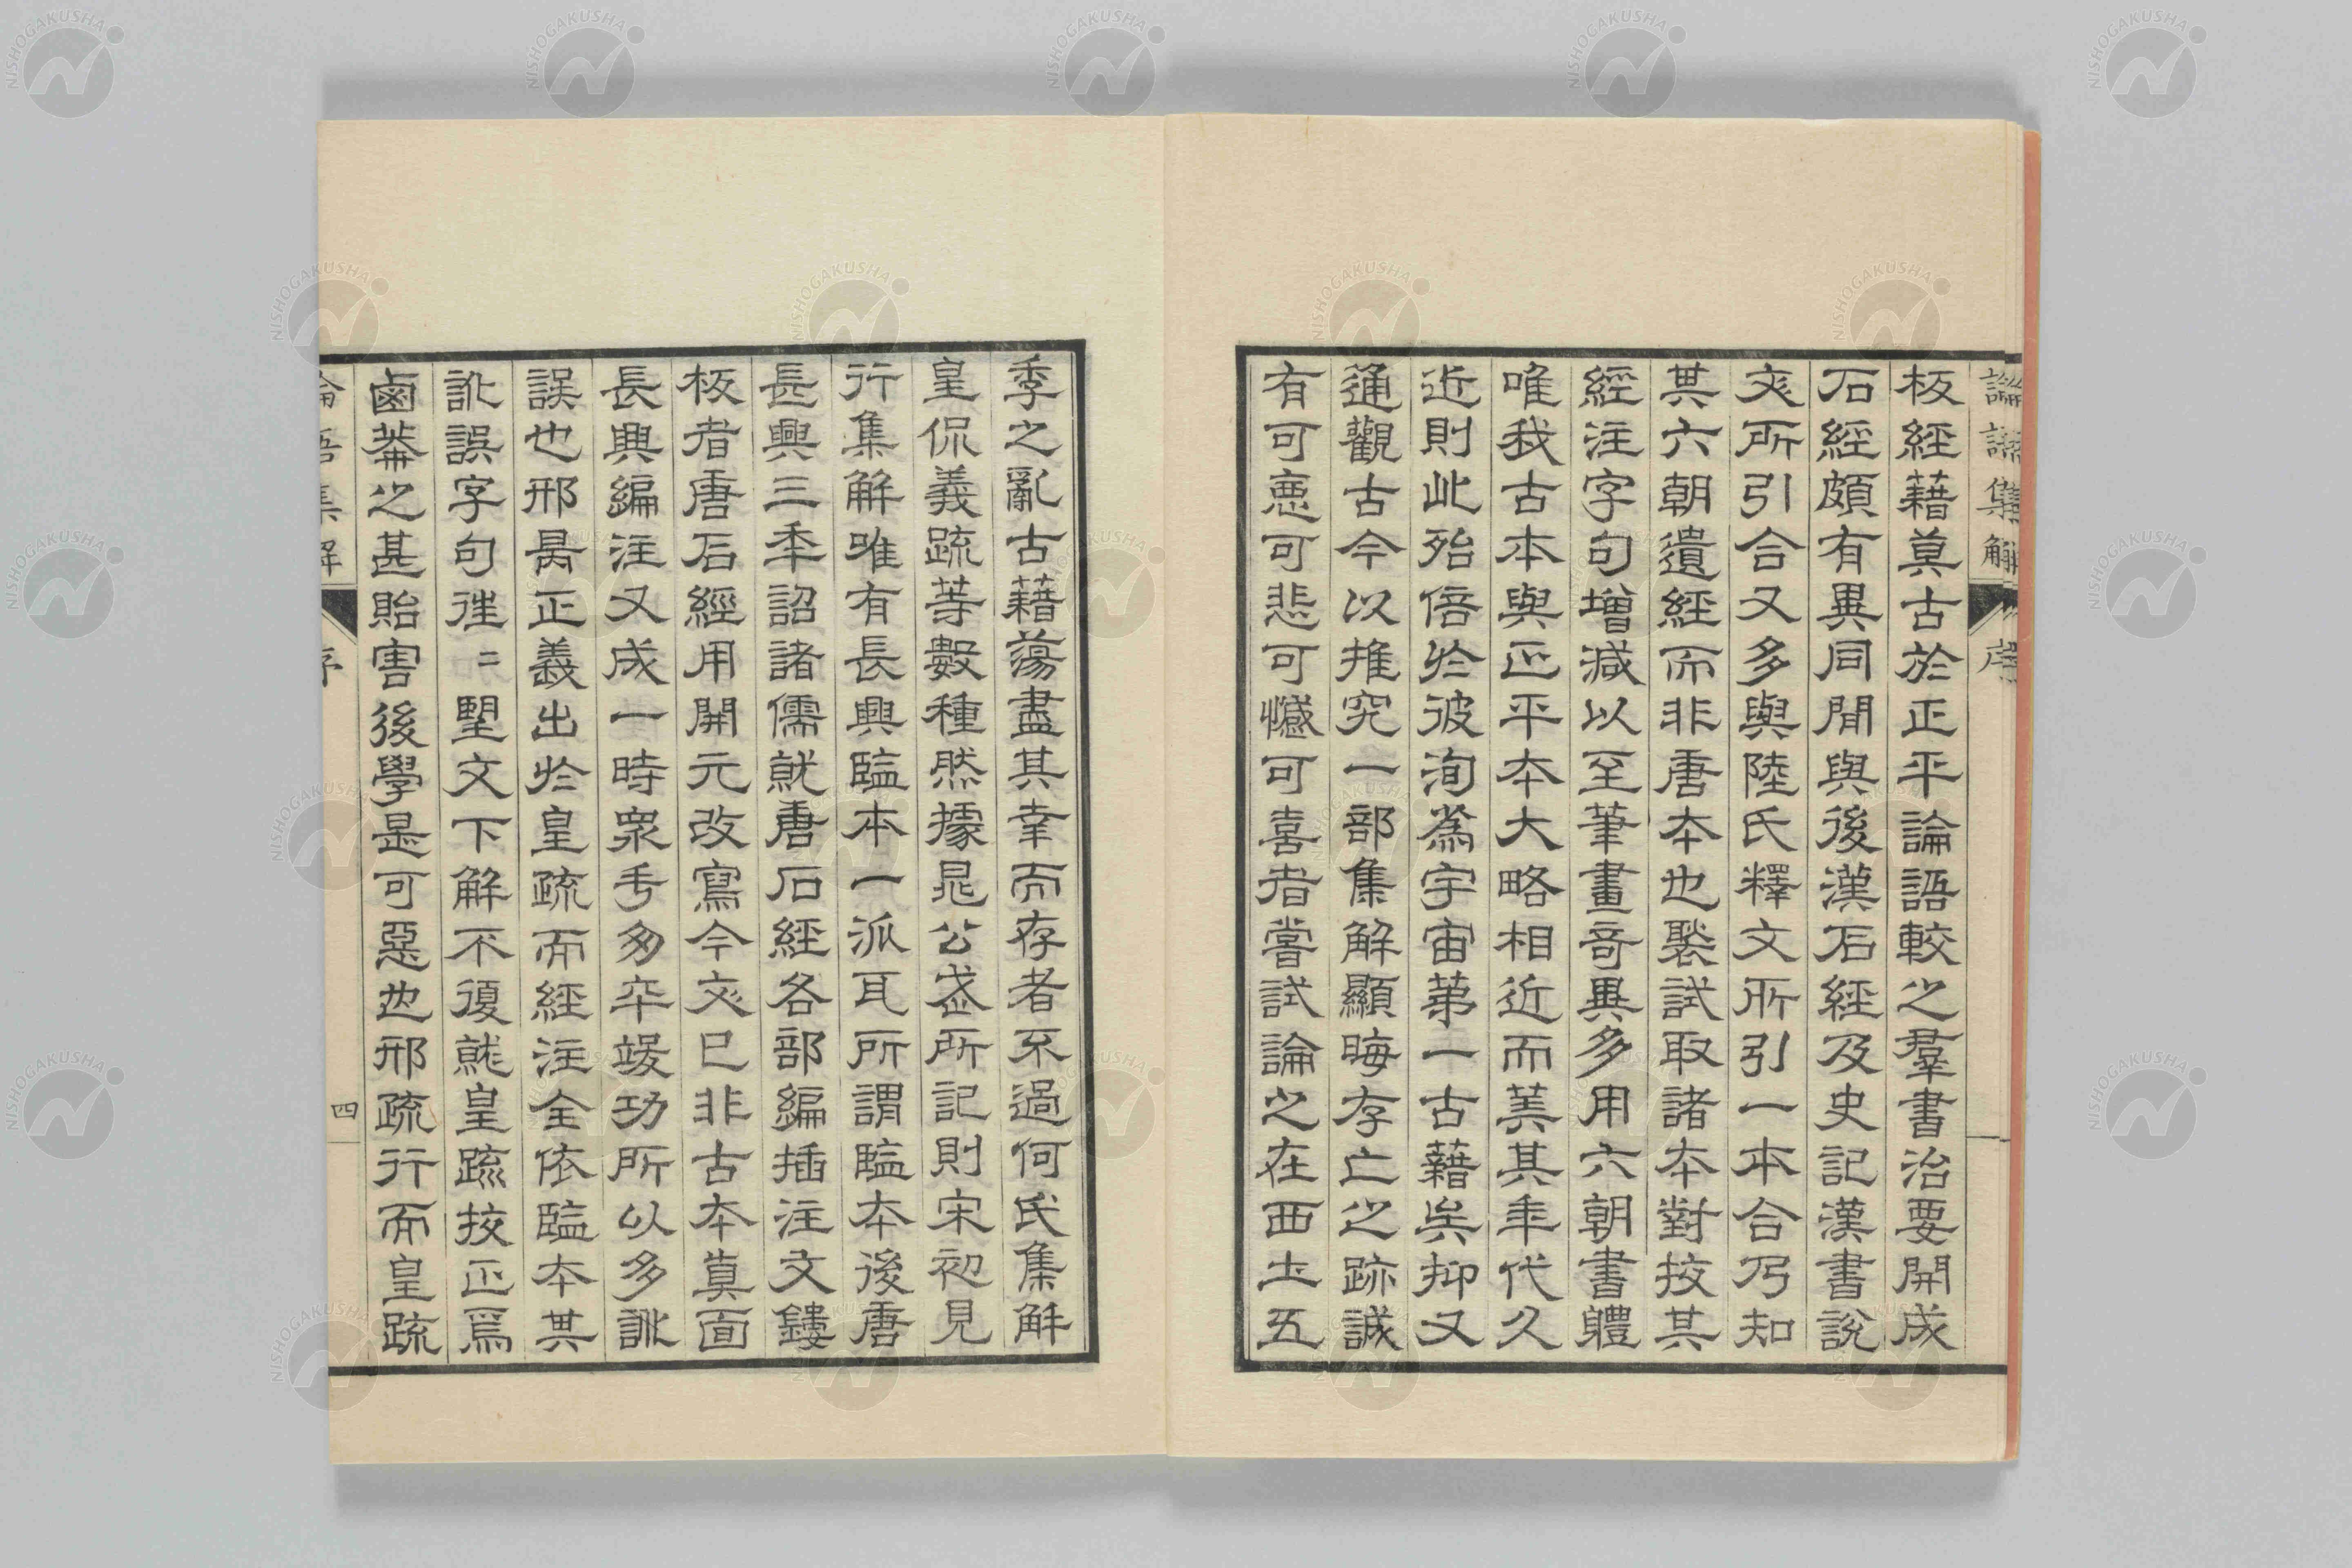 論語集解 序
板經藉莫古於正平論語較之羣書治要開成
石經頗有異同閒與後漢石經及史記漢書說
文所引合又多與陸氏釋文所引一本合乃知
其六朝遺經而非唐本也褧試取諸本對挍其
經注字句增減以至筆畫奇異多用六朝書體
唯我古本與正平本大略相近而若其年代久
近則此殆倍於彼洵為宇宙第一古藉矣抑又
通觀古今以推究一部集解顯晦存亡之跡誠
有可恵可悲可憾可喜者嘗試論之在西土五
季之亂古藉蕩盡其幸而存者不過何氏集解
皇侃義疏等數種然據晁公武所記則宋初見
行集解唯有長興監本一派耳所謂監本後唐
長興三年詔諸儒就唐石經各部編插注文鏤
板者唐石經用開元改寫今文已非古本真面
長興編注又成一時眾手匆卒竣功所以多訛
誤也邢昺正義出於皇疏而經注全依監本其
訛誤字句徃〻望文下解不復就皇疏挍正焉
鹵莽之甚貽害後學是可惡也邢疏行而皇疏
論語集解 序 四
NISHOGAKUSHA